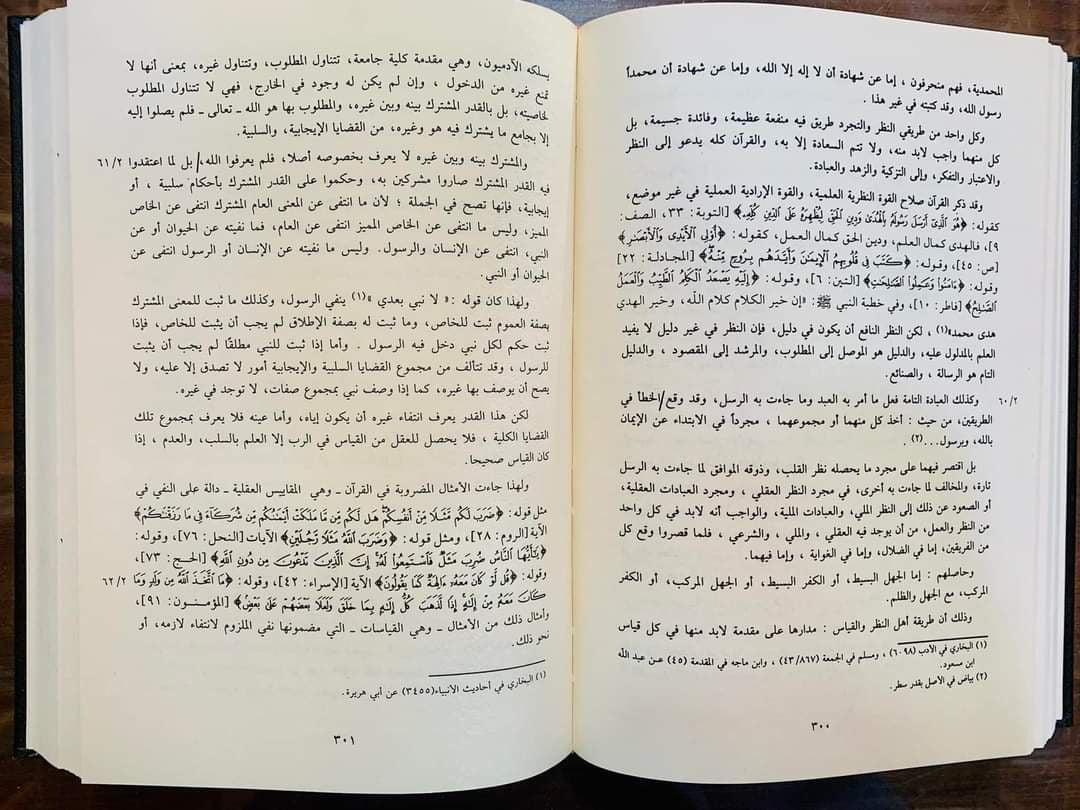 المحمدية، فهم منحرفون ، إما عن شهادة أن لا إله إلا الله، وإما عن شهادة أن محمداً
رسول الله، وقد كتبته في غير هذا .
وكل واحد من طريقي النظر والتجرد طريق فيه منفعة عظيمة، وفائدة جسيمة، بل
كل منهما واجب لابد منه، ولا تتم السعادة إلا به، والقرآن كله يدعو إلى النظر
والاعتبار والتفكر، وإلى التزكية والزهد والعبادة.
وقد ذكر القرآن صلاح القوة النظرية العلمية، والقوة الإرادية العملية في غير موضع،
كقوله: ﴿هُوَ الَّذِي أَرْسَلَ رَسُولَهُ بِالْهُدَىٰ وَدِينِ الْحَقِّ لِيُظْهِرَهُ عَلَى الدِّينِ كُلِّهِ﴾ [التوبة: ٣٣، الصف:
٩]، فالهدى كمال العلم، ودين الحق كمال العمل، كقوله: ﴿أُوْلِي الْأَيْدِي وَالْأَبْصَارِ﴾
[ص: ٤٥]، وقوله: ﴿كَتَبَ فِي قُلُوبِهِمُ الْإِيمَانَ وَأَيَّدَهُم بِرُوحٍ مِّنْهُ﴾ [المجادلة: ٢٢]
وقوله: ﴿ءَامَنُوا وَعَمِلُوا الصَّالِحَاتِ﴾ [التين: ٦]، وقوله: ﴿إِلَيْهِ يَصْعَدُ الْكَلِمُ الطَّيِّبُ وَالْعَمَلُ
الصَّالِحُ﴾ [فاطر: ١٠]، وفي خطبة النبي ﷺ: «إن خير الكلام كلام الله، وخير الهدي
هدى محمد»(١) ، لكن النظر النافع أن يكون في دليل، فإن النظر في غير دليل لا يفيد
العلم بالمدلول عليه، والدليل هو الموصل إلى المطلوب، والمرشد إلى المقصود ، والدليل
التام هو الرسالة ، والصنائع.
وكذلك العبادة التامة فعل ما أمر به العبد وما جاءت به الرسل، وقد وقع/الخطأ في ٦٠/٢
الطريقين، من حيث : أخذ كل منهما أو مجموعهما ، مجرداً في الابتداء عن الإيمان
بالله، وبرسول...(٢) .
بل اقتصر فيهما على مجرد ما يحصله نظر القلب، وذوقه الموافق لما جاءت به الرسل
تارة، والمخالف لما جاءت به أخرى، في مجرد النظر العقلي ، ومجرد العبادات العقلية،
أو الصعود عن ذلك إلى النظر الملي، والعبادات الملية، والواجب أنه لابد في كل واحد
من النظر والعمل، من أن يوجد فيه العقلي ، والملي ، والشرعي ، فلما قصروا وقع كل
من الفريقين، إما في الضلال، وإما في الغواية ، وإما فيهما.
وحاصلهم : إما الجهل البسيط، أو الكفر البسيط، أو الجهل المركب، أو الكفر
المركب، مع الجهل والظلم.
وذلك أن طريقة أهل النظر والقياس : مدارها على مقدمة لابد منها في كل قياس
(١) البخاري في الأدب (٦٠٩٨) ، ومسلم في الجمعة (٤٣/٨٦٧) ، وابن ماجه في المقدمة (٤٥) عـن عبد الله
ابن مسعود.
(٢) بياض في الأصل بقدر سطر.
٣٠٠
يسلكه الآدميون، وهي مقدمة كلية جامعة، تتناول المطلوب، وتتناول غيره، بمعنى أنها لا
تمنع غيره من الدخول ، وإن لم يكن له وجود في الخارج، فهي لا تتناول المطلوب
لخاصيته، بل بالقدر المشترك بينه وبين غيره، والمطلوب بها هو الله ـ تعالى ـ فلم يصلوا إليه
إلا بجامع ما يشترك فيه هو وغيره، من القضايا الإيجابية، والسلبية.
والمشترك بينه وبين غيره لا يعرف بخصوصه أصلا، فلم يعرفوا الله،/ بل لما اعتقدوا ٦١/٢
فيه القدر المشترك صاروا مشركين به، وحكموا على القدر المشترك بأحكام سلبية ، أو
إيجابية، فإنها تصح في الجملة ؛ لأن ما انتفى عن المعنى العام المشترك انتفى عن الخاص
المميز، وليس ما انتفى عن الخاص المميز انتفى عن العام، فما نفيته عن الحيوان أو عن
النبي، انتفى عن الإنسان والرسول. وليس ما نفيته عن الإنسان أو الرسول انتفى عن
الحيوان أو النبي.
ولهذا كان قوله : « لا نبي بعدي »(١) ينفي الرسول، وكذلك ما ثبت للمعنى المشترك
بصفة العموم ثبت للخاص، وما ثبت له بصفة الإطلاق لم يجب أن يثبت للخاص، فإذا
ثبت حكم لكل نبي دخل فيه الرسول . وأما إذا ثبت للنبي مطلقًا لم يجب أن يثبت
للرسول ، وقد تتألف من مجموع القضايا السلبية والإيجابية أمور لا تصدق إلا عليه، ولا
يصح أن يوصف بها غيره، كما إذا وصف نبي بمجموع صفات، لا توجد في غيره.
لكن هذا القدر يعرف انتفاء غيره أن يكون إياه، وأما عينه فلا يعرف بمجموع تلك
القضايا الكلية ، فلا يحصل للعقل من القياس في الرب إلا العلم بالسلب، والعدم ، إذا
كان القياس صحيحا.
ولهذا جاءت الأمثال المضروبة في القرآن ـ وهي المقاييس العقلية ـ دالة على النفي في
مثل قوله: ﴿ضَرَبَ لَكُم مَّثَلًا مِّنْ أَنفُسِكُمْ هَل لَّكُم مِّن مَّا مَلَكَتْ أَيْمَانُكُم مِّن شُرَكَاءَ فِي مَا رَزَقْنَاكُمْ﴾
الآية [الروم: ٢٨]، ومثل قوله: ﴿وَضَرَبَ اللَّهُ مَثَلًا رَّجُلَيْنِ﴾ الآيات [النحل: ٧٦]، وقوله:
﴿يَا أَيُّهَا النَّاسُ ضُرِبَ مَثَلٌ فَاسْتَمِعُوا لَهُ إِنَّ الَّذِينَ تَدْعُونَ مِن دُونِ اللَّهِ﴾ [الحج: ٧٣]،
وقوله: ﴿قُل لَّوْ كَانَ مَعَهُ ءَالِهَةٌ كَمَا يَقُولُونَ﴾ الآية [الإسراء: ٤٢]، وقوله: ﴿مَا اتَّخَذَ اللَّهُ مِن وَلَدٍ وَمَا ٦٢/٢
كَانَ مَعَهُ مِنْ إِلَٰهٍ إِذًا لَّذَهَبَ كُلُّ إِلَٰهٍ بِمَا خَلَقَ وَلَعَلَا بَعْضُهُمْ عَلَىٰ بَعْضٍ﴾ [المؤمنـون: ٩١]،
وأمثال ذلك من الأمثال ـ وهي القياسات ـ التي مضمونها نفي الملزوم لانتفاء لازمه، أو
نحو ذلك.
(١) البخاري في أحاديث الأنبياء(٣٤٥٥) عن أبي هريرة.
٣٠١